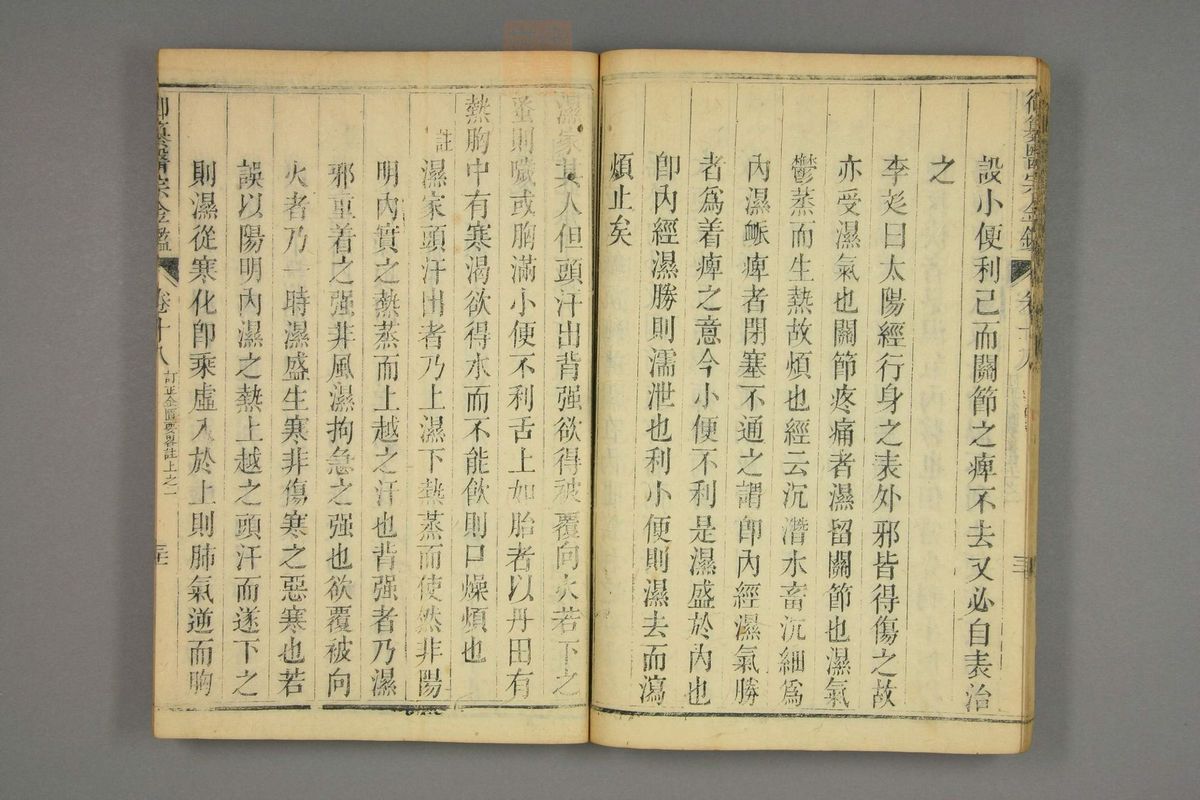 設小便利已而關節之痺不去又必自表治
之
李彣曰太陽經行身之表外邪皆得傷之故
亦受濕氣也關節疼痛者濕留關節也濕氣
鬱蒸而生熱故煩也經云沉潛水畜沉細為
內濕脈痺者閉塞不通之謂卽內經濕氣勝
者爲着痺之意今小便不利是濕盛於內也
卽內經濕勝則濡泄也利小便則濕去而瀉
煩止矣
濕家其人但頭汗出背强欲得被覆向火若下之
蚤則噦或胸滿小便不利舌上如胎者以丹田有
熱胸中有寒渴欲得水而不能飲則口燥煩也
註
濕家頭汗出者乃上濕下熱蒸而使然非陽
明內實之熱蒸而上越之汗也背强者乃濕
邪重着之强非風濕拘急之强也欲覆被向
火者乃一時濕盛生寒非傷寒之惡寒也若
誤以陽明內濕之熱上越之頭汗而遂下之
則濕從寒化卽乘虛入於上則肺氣逆而胸
御纂醫宗金鑑
卷十八
訂正金匱要畧註上之一